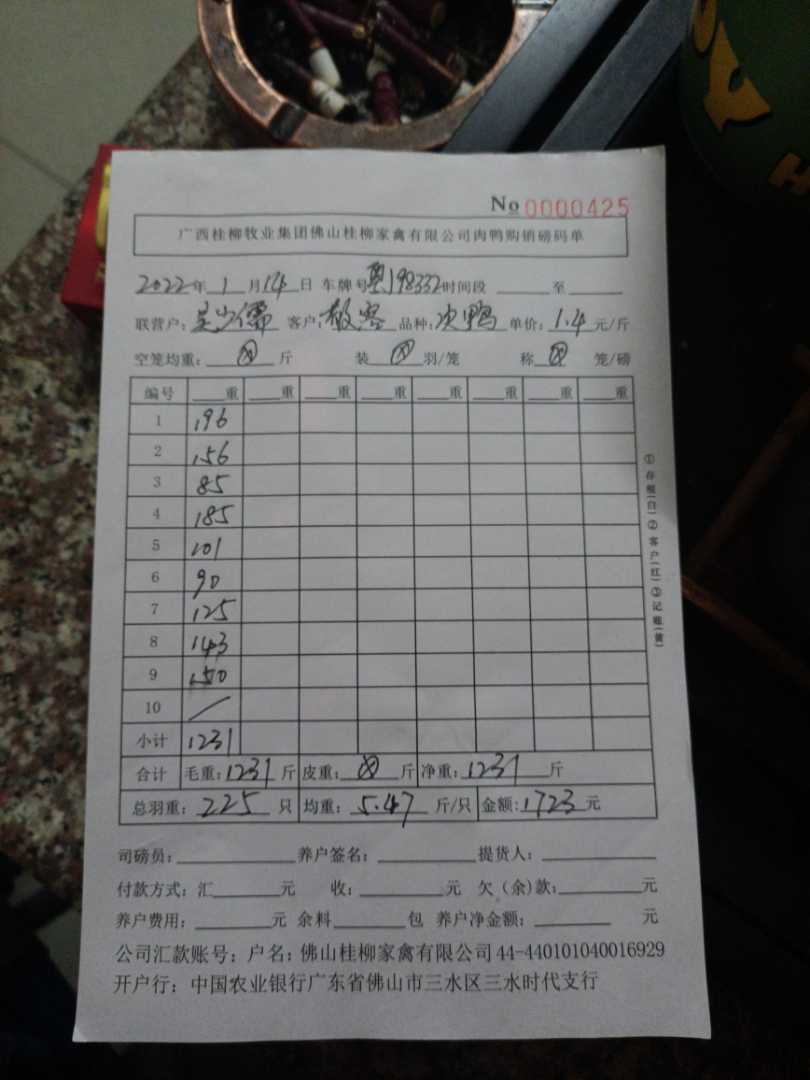 No 0000425
广西桂柳牧业集团佛山桂柳家禽有限公司肉鸭购销磅码单
2022年 1 月 14 日 车牌号 粤J98332 时间段 至
联营户: 儒 客户: 散客 品种: 次鸭 单价: 1.4 元/斤
空笼均重: ⊗ 斤 装 ⊗ 羽/笼 称 ⊗ 笼/磅
编号 重 重 重 重 重 重 重 重
1 196
2 156
3 85
4 185
5 101
6 90
7 125
8 143
9 150
10 /
小计 1231
合计 毛重: 1231 斤 皮重: ⊗ 斤 净重: 1231 斤
总羽重: 225 只 均重: 5.47 斤/只 金额: 1723 元
司磅员: 养户签名: 提货人:
付款方式: 汇 元 收: 元 欠(余)款: 元
养户费用: 元 余料 包 养户净金额: 元
公司汇款账号: 户名: 佛山桂柳家禽有限公司 44-440101040016929
开户行: 中国农业银行广东省佛山市三水区三水时代支行
①存根(白)②客户(红)③记账(黄)